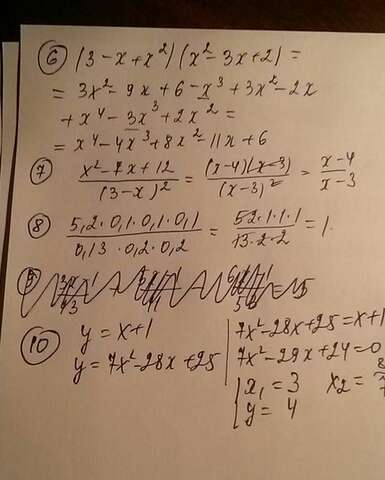 ⑥ (3-x+x²)(x²-3x+2)=
= 3x²-9x+6-x³+3x²-2x
+x⁴-3x³+2x²=
= x⁴-4x³+8x²-11x+6
⑦ (x²-7x+12)/(3-x)² = (x-4)(x-3)/(x-3)² = (x-4)/(x-3)
⑧ (5,2·0,1·0,1·0,1)/(0,13·0,2·0,2) = (52·1·1·1)/(13·2·2) = 1.
=15
⑩ y = x+1
y = 7x²-28x+25
7x²-28x+25=x+1
7x²-29x+24=0
x₁ = 3 x₂ = 8/7
y = 4